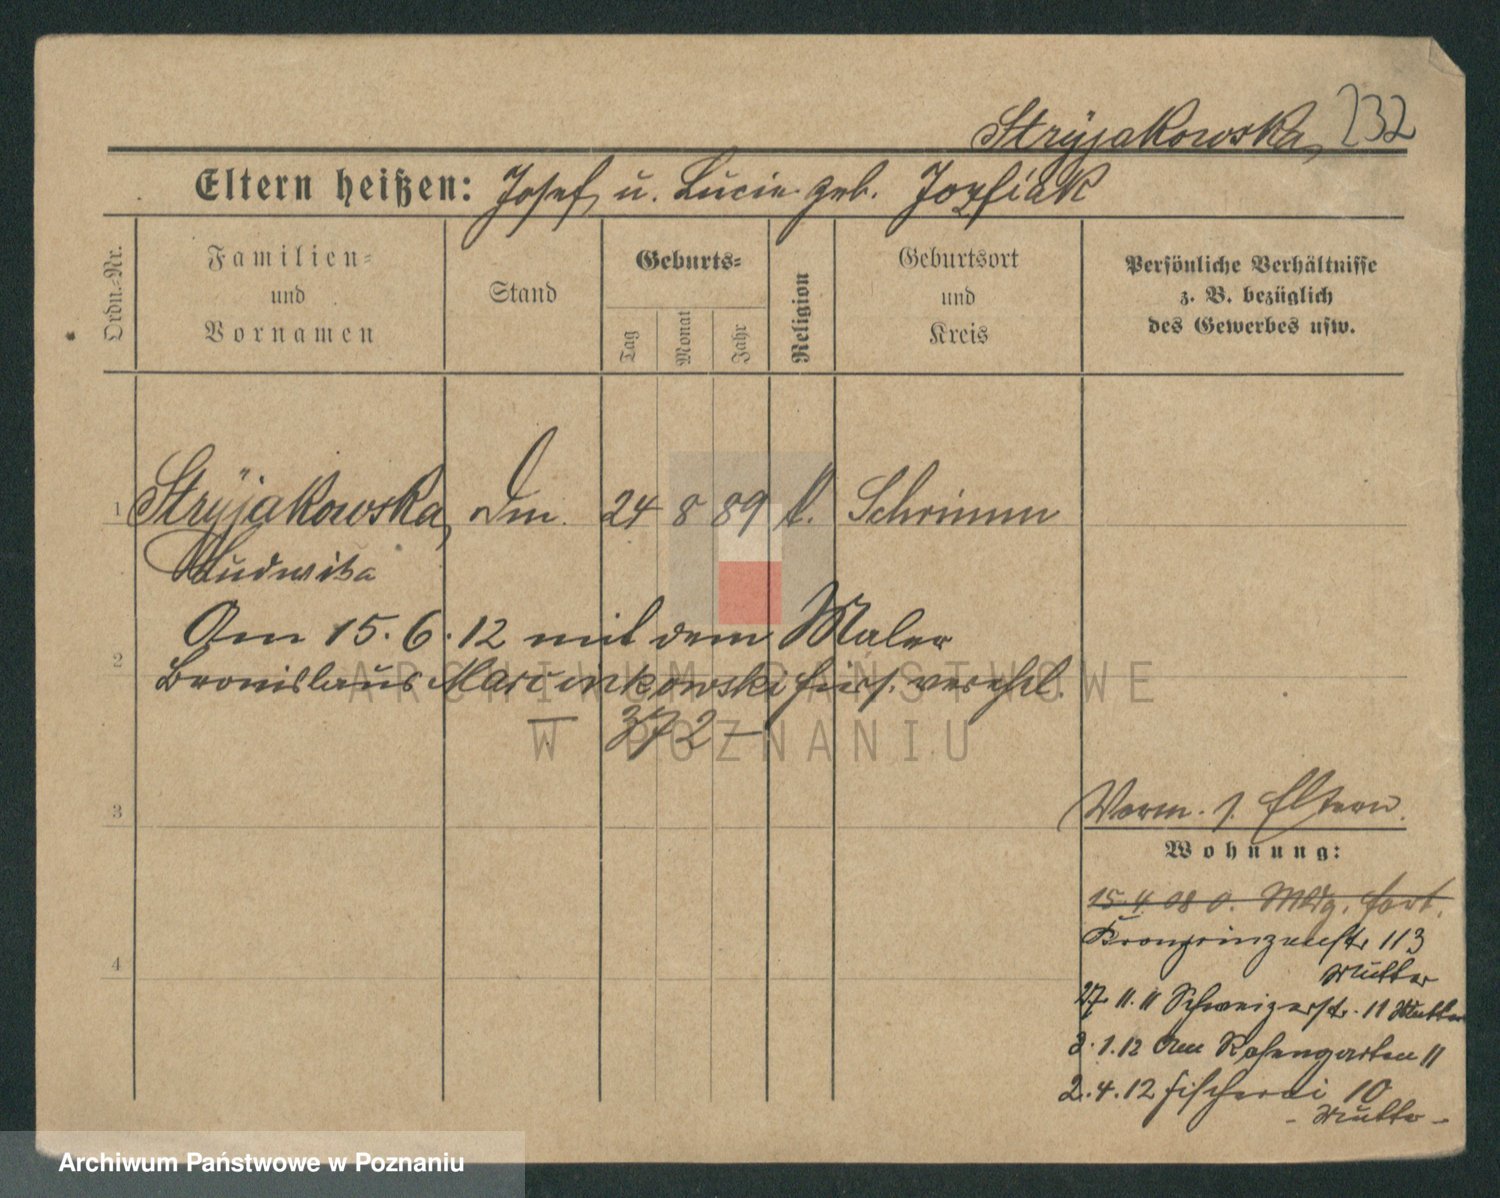 Stryjakowska, 232
Eltern heißen: Josef u. Lucie geb. Jozfiak
Ordn.-Nr.
Familien- und Vornamen
Stand
Geburts-
Tag Monat Jahr
Religion
Geburtsort und Kreis
Persönliche Verhältnisse z. B. bezüglich des Gewerbes usw.
1 Stryjakowska, 24 8 89 k. Schrimm
Ludwika
Am 15.6.12 mit dem Maler
2
Bronislaus Marcinkowski hies. verehl.
— 372 —
3
4
Vorm. s. Eltern.
Wohnung:
15.4.08 o. Mldg. fort.
Kronprinzenstr. 113
Mutter
27.11.11 Schweizerstr. 11 Mutter
3.1.12 Am Rosengarten 11
2.4.12 Fischerei 10
- Mutter -
ARCHIWUM PAŃSTWOWE
W POZNANIU
Archiwum Państwowe w Poznaniu